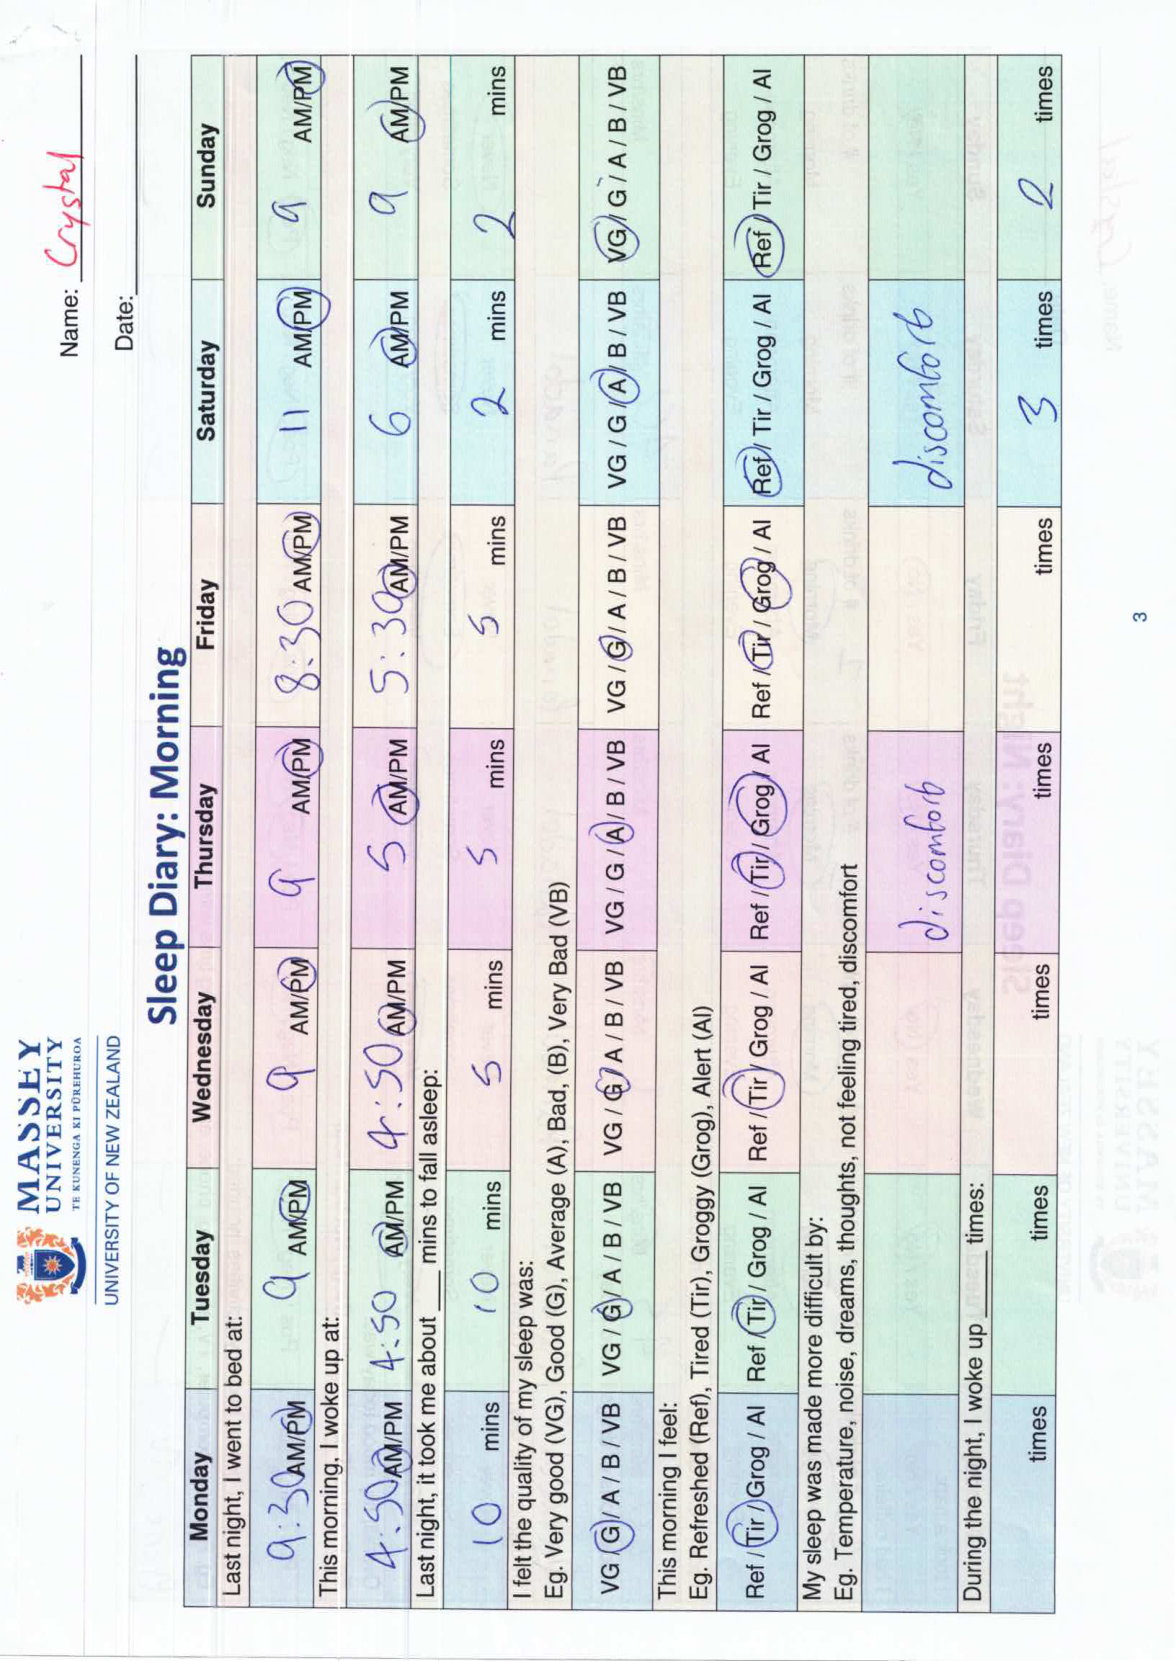 MASSEY
UNIVERSITY
TE KUNENGA KI PŪREHUROA
UNIVERSITY OF NEW ZEALAND
Name: Crystal
Date:
Sleep Diary: Morning
Monday Tuesday Wednesday Thursday Friday Saturday Sunday
Last night, I went to bed at:
9:30 AM/PM 9 AM/PM 9 AM/PM 9 AM/PM 8:30 AM/PM 11 AM/PM 9 AM/PM
This morning, I woke up at:
4:50 AM/PM 4:50 AM/PM 4:50 AM/PM 5 AM/PM 5:30 AM/PM 6 AM/PM 9 AM/PM
Last night, it took me about ____ mins to fall asleep:
10 mins 10 mins 5 mins 5 mins 5 mins 2 mins 2 mins
I felt the quality of my sleep was:
Eg. Very good (VG), Good (G), Average (A), Bad, (B), Very Bad (VB)
VG / G / A / B / VB VG / G / A / B / VB VG / G / A / B / VB VG / G / A / B / VB VG / G / A / B / VB VG / G / A / B / VB VG / G / A / B / VB
This morning I feel:
Eg. Refreshed (Ref), Tired (Tir), Groggy (Grog), Alert (Al)
Ref / Tir / Grog / Al Ref / Tir / Grog / Al Ref / Tir / Grog / Al Ref / Tir / Grog / Al Ref / Tir / Grog / Al Ref / Tir / Grog / Al Ref / Tir / Grog / Al
My sleep was made more difficult by:
Eg. Temperature, noise, dreams, thoughts, not feeling tired, discomfort
discomforb discomforb
During the night, I woke up ____ times:
times times times times times 3 times 2 times
3